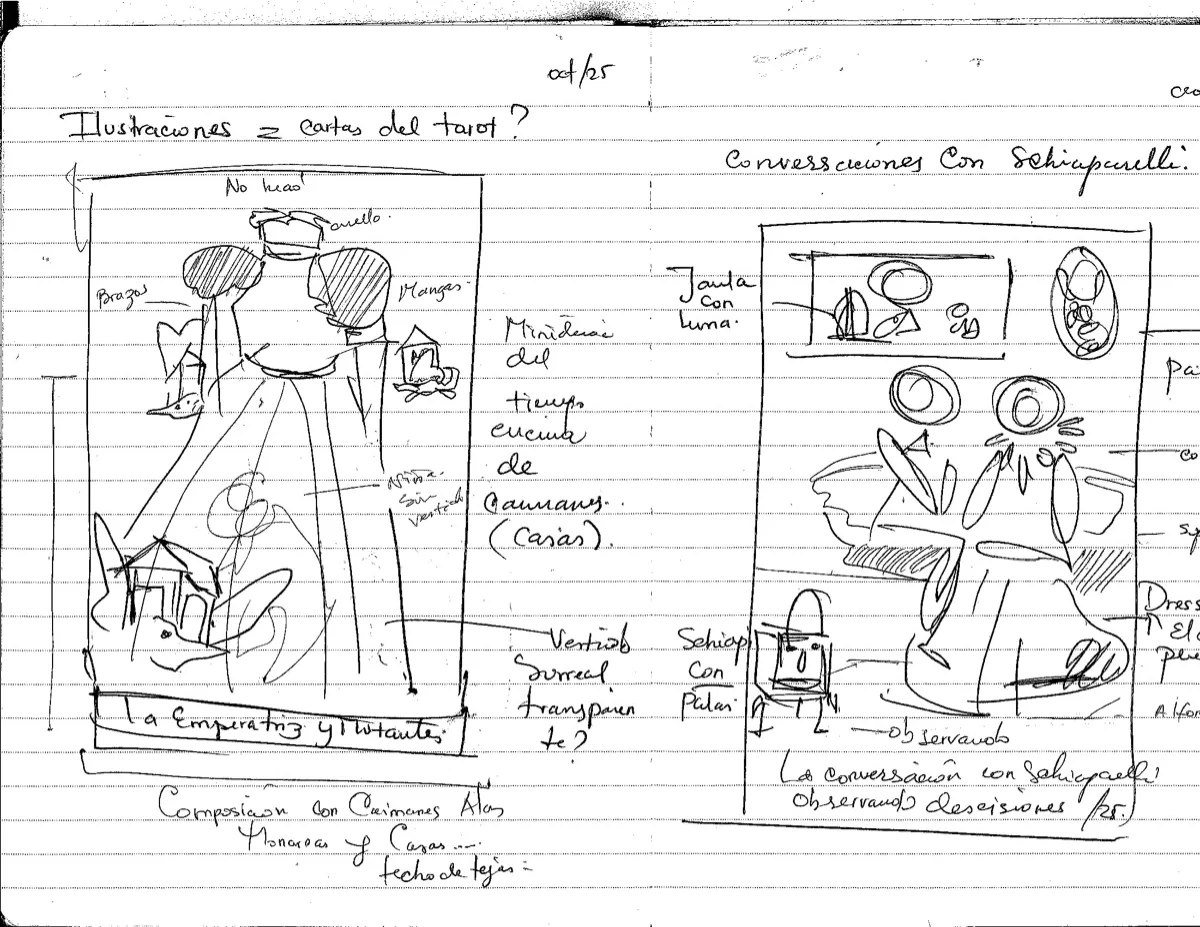 oct/25
Ilustraciones = cartas del tarot?
No head
Cuello.
Brazos
Mangas.
del
tiempo
encima
de
Caimanes..
(Casas).
sin
vertido
Surreal
transparen
te?
La Emperatriz y Mutantes.
Composición con Caimanes Alas
y Casas ....
techo de tejas =
Converssaciones Con Schiaparelli.
Jaula
con
Luna.
Schiap
con
Patas.
Observando
La conversación con Schiaparelli
observando descisiones /25.
Dress